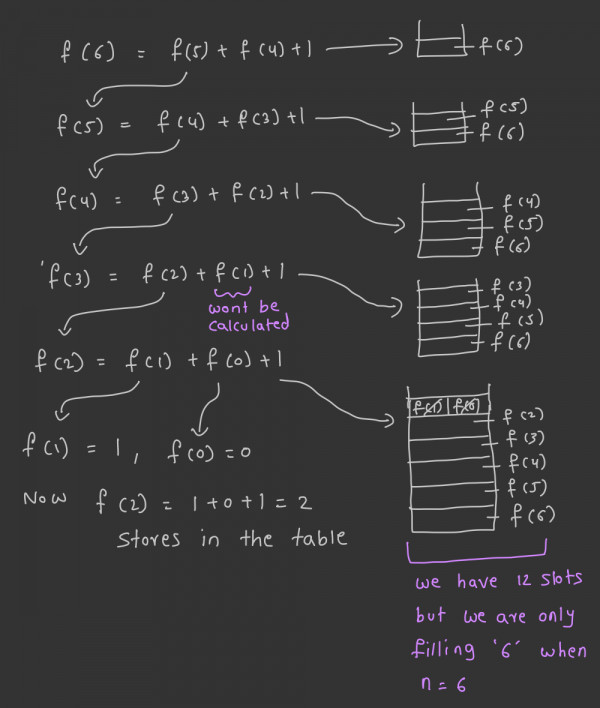 f(6) = f(5) + f(4) + 1
f(6)
f(5) = f(4) + f(3) + 1
f(5)
f(6)
f(4) = f(3) + f(2) + 1
f(4)
f(5)
f(6)
f(3) = f(2) + f(1) + 1
wont be
calculated
f(3)
f(4)
f(5)
f(6)
f(2) = f(1) + f(0) + 1
f(1) f(0)
f(2)
f(3)
f(4)
f(5)
f(6)
f(1) = 1, f(0) = 0
Now f(2) = 1+0+1 = 2
Stores in the table
we have 12 slots
but we are only
filling '6' when
n = 6